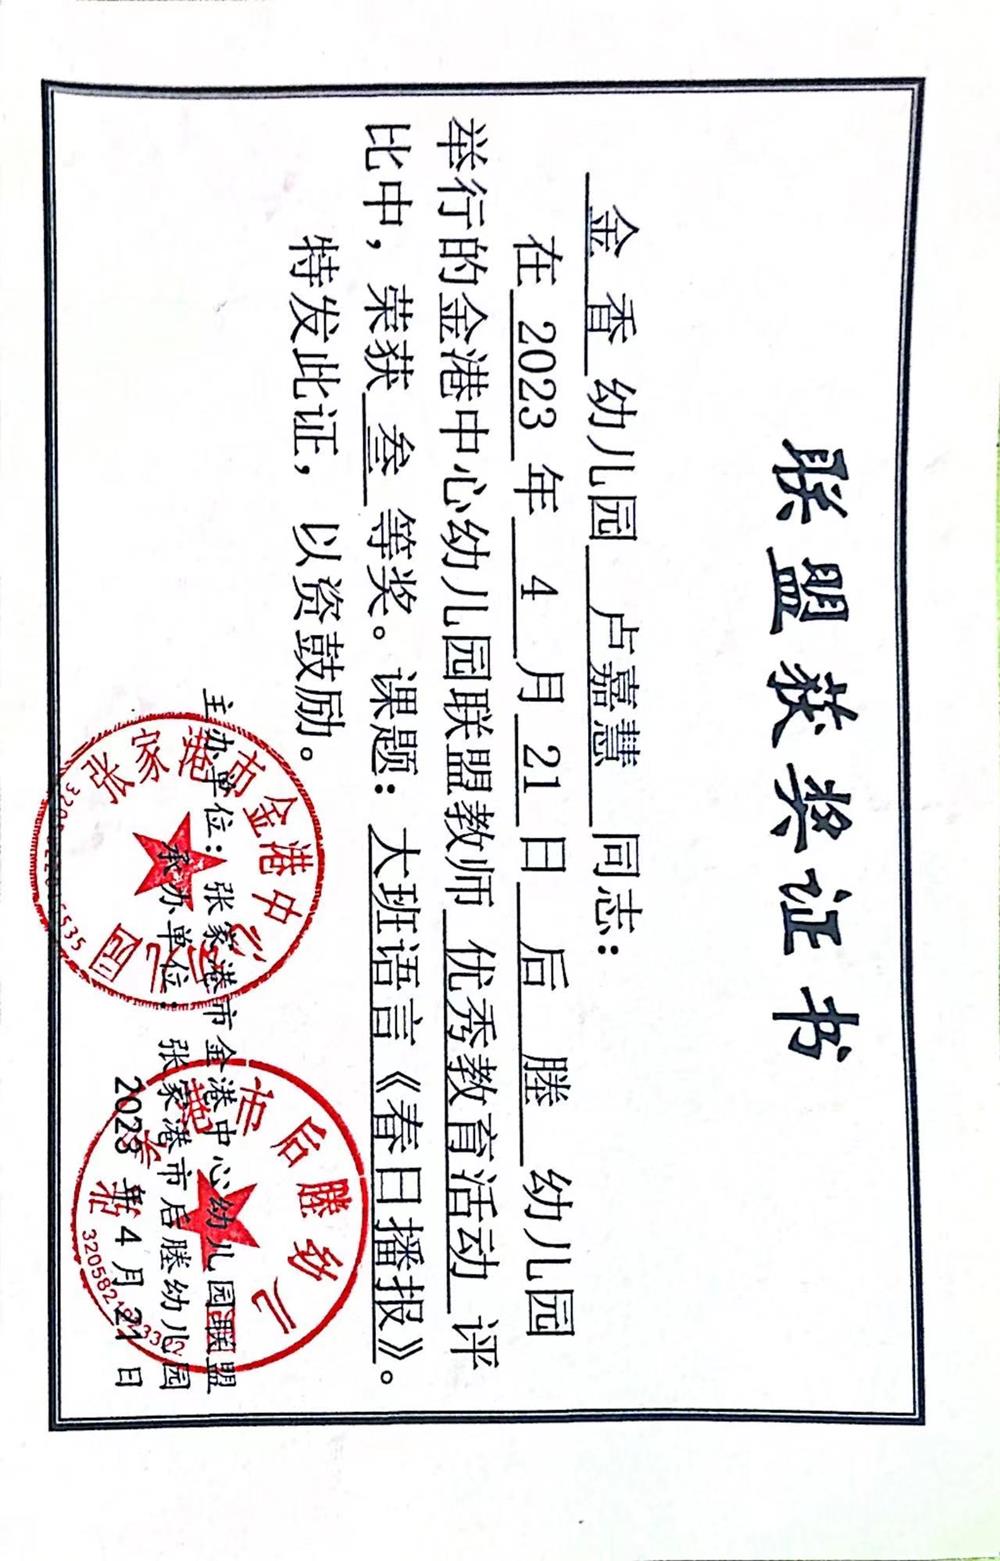 联盟获奖证书
金 香 幼儿园 卢嘉慧 同志：
在 2023 年 4 月 21 日 后 塍 幼儿园
举行的金港中心幼儿园联盟教师 优秀教育活动 评
比中，荣获 叁 等奖。课题：大班语言《春日播报》。
特发此证，以资鼓励。
主办单位：张家港市金港中心幼儿园联盟
承办单位：张家港市后塍幼儿园
2023 年 4 月 21 日
张家港市金港中心幼儿园
张家港市后塍幼儿园